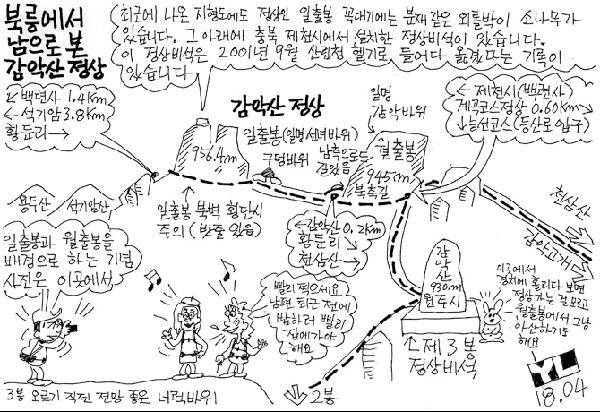 북릉에서
남으로 본
감악산 정상
최근에 나온 지형도에도 정상인 일출봉 꼭대기에는 분재같은 외톨박이 소나무가
있습니다. 그 아래에 충북 제천시에서 설치한 정상비석이 있습니다.
이 정상비석은 2001년 9월 산림청 헬기로 들어다 옮겼다는 기록이
있습니다
백련사 1.4Km
석기암 3.8Km
황둔리
감악산 정상
일명
감악바위
제천시(백련사)
계곡코스정상 0.60Km
능선코스(등산로입구)
956.4m
일출봉(일명 선녀바위)
구멍바위
남측으로도
길있음
월출봉
945m
북측길
용두산
석기암산
일출봉 북벽 횡단시
주의 (밧줄 있음)
감악산 0.2Km
황둔리
천삼산
천삼산
감악고개
일출봉과 월출봉을
배경으로 하는 기념
사진은 이곳에서
빨리 찍으세요
남편 퇴근 전에
밥하러 빨리
집에가야
해요
감악산
930m
원주시
이곳에서
경치에 홀리다 보면
정상가는 걸 모르고
월출봉에서 그냥
하산하기도
해요
제3봉
정상비석
3봉 오르기 직전 전망 좋은 너럭바위
2봉
YL
18.04